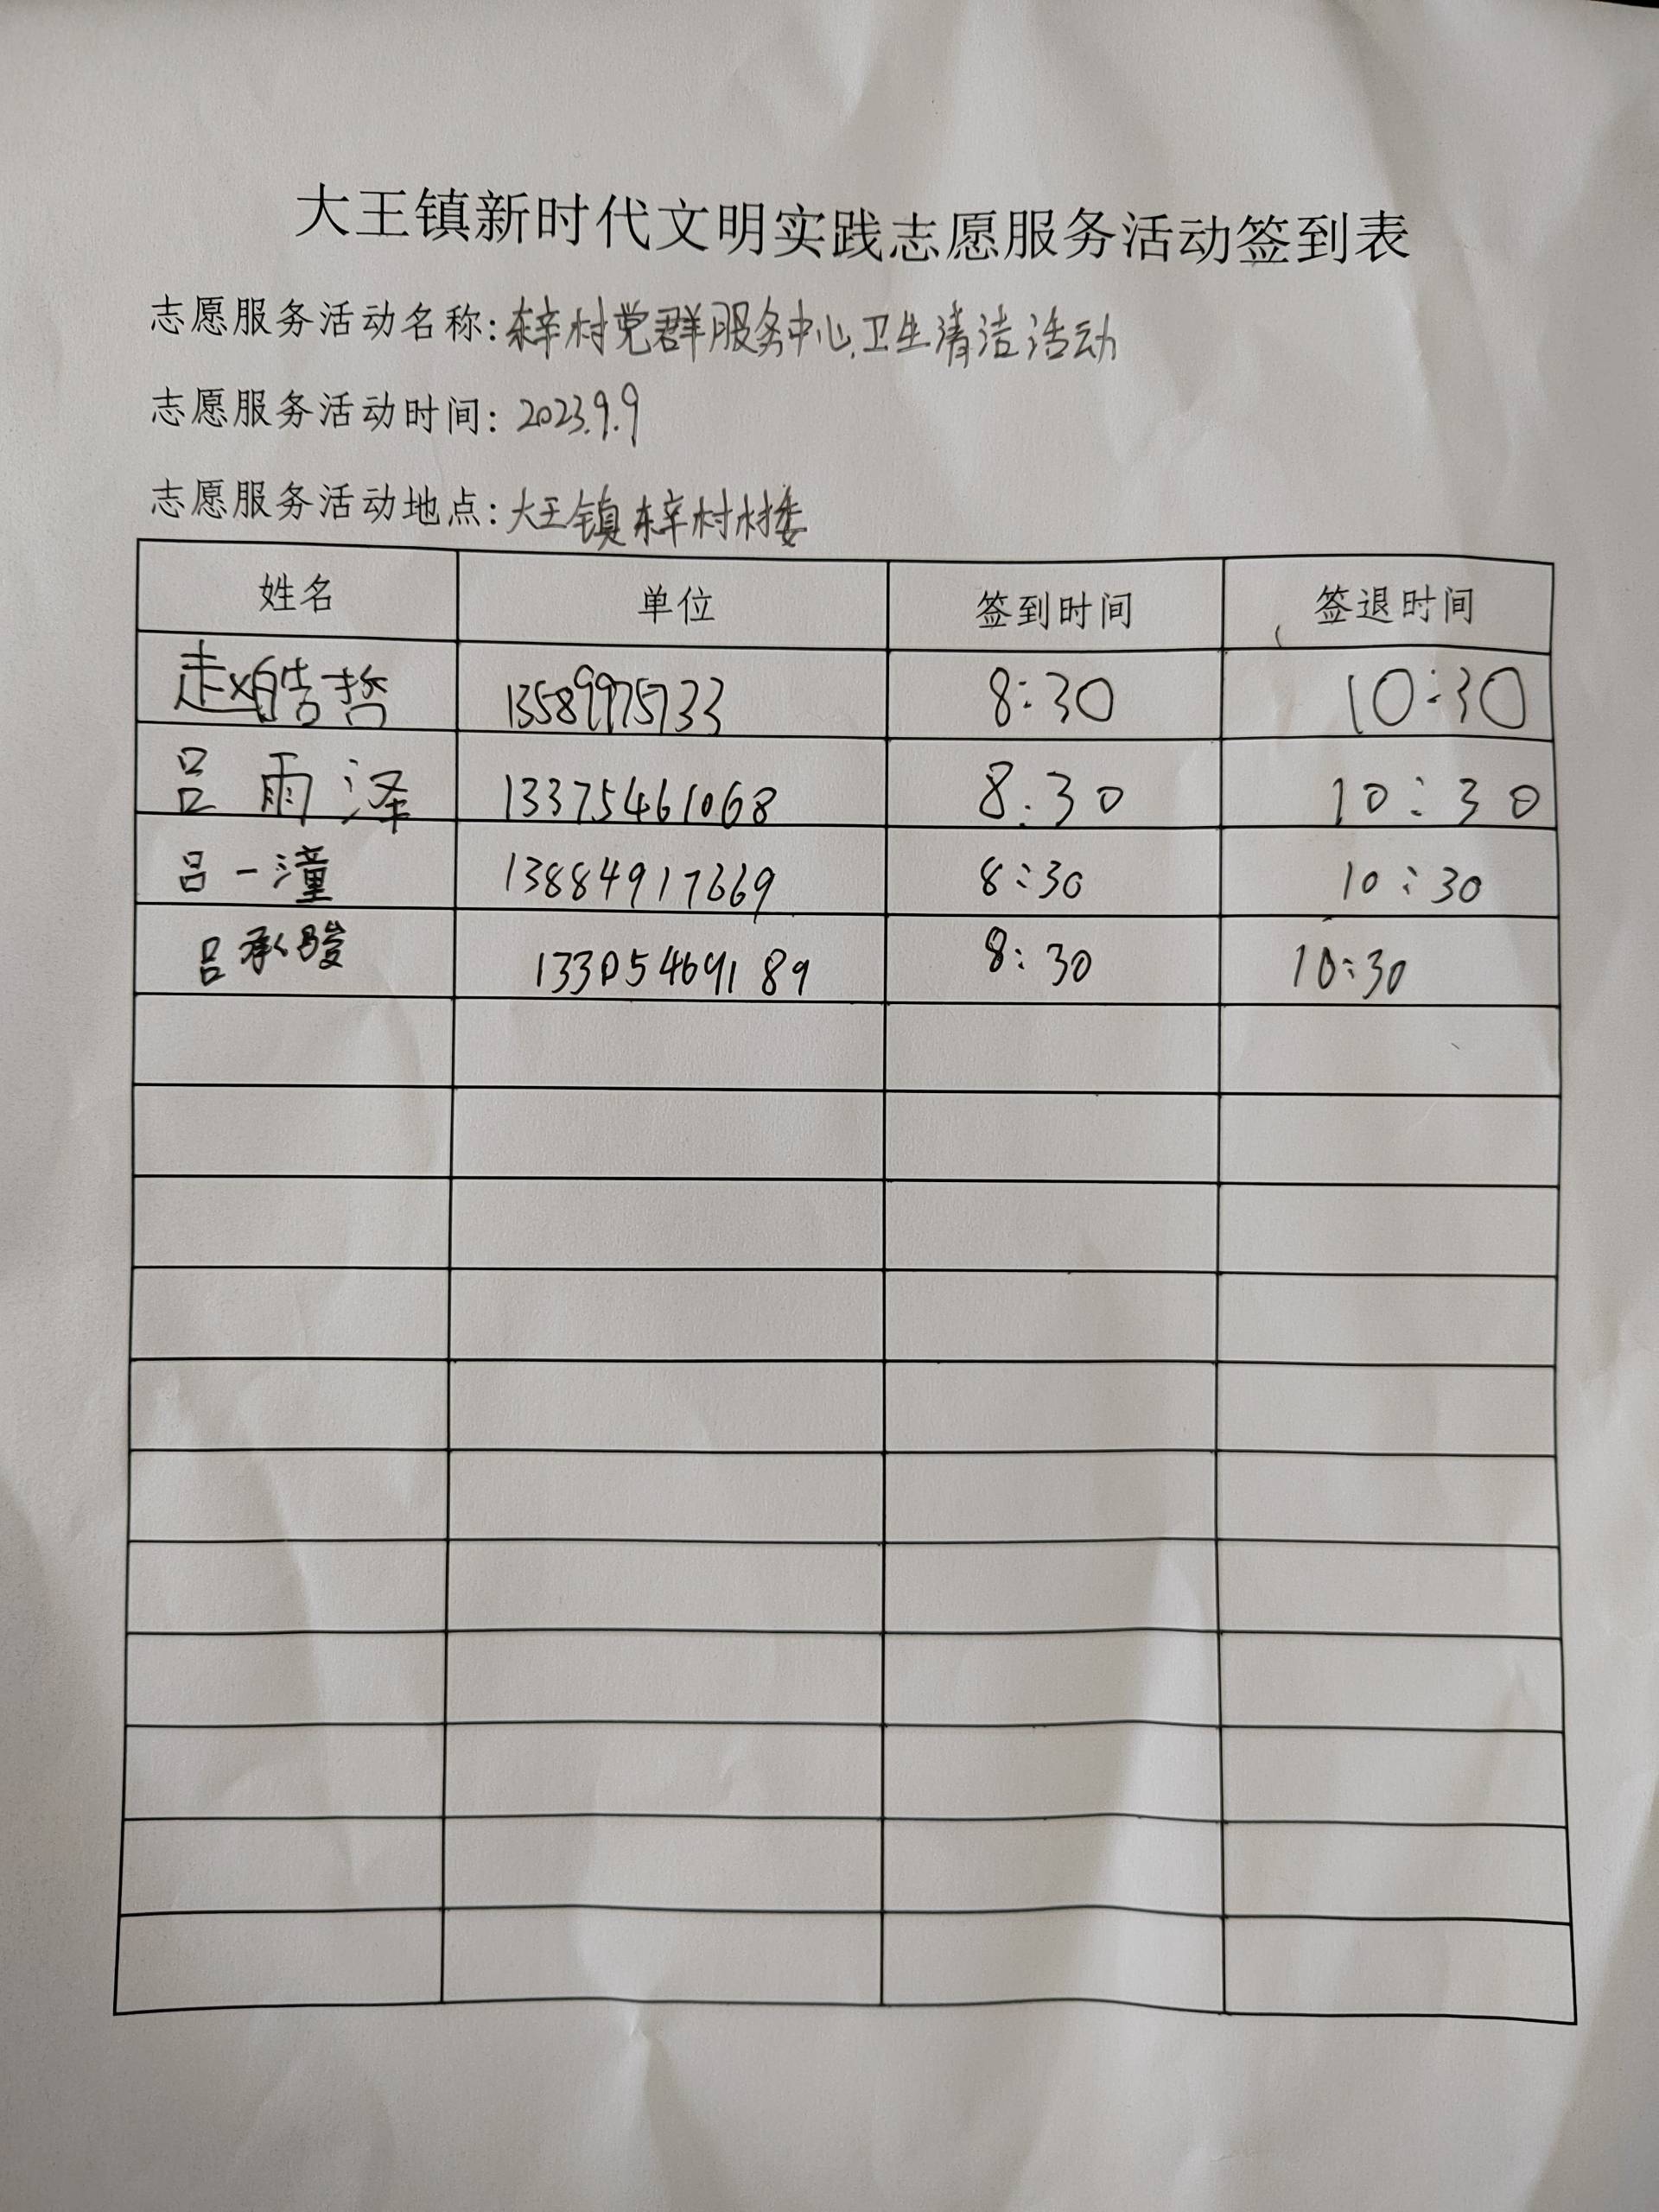 大王镇新时代文明实践志愿服务活动签到表
志愿服务活动名称:梓村党群服务中心卫生清洁活动
志愿服务活动时间:2023.9.9
志愿服务活动地点:大王镇梓村村委
姓名 单位 签到时间 签退时间
赵皓哲 13589975733 8:30 10:30
吕雨泽 13375461068 8:30 10:30
吕一潼 13884917669 8:30 10:30
吕承骏 13305469189 8:30 10:30